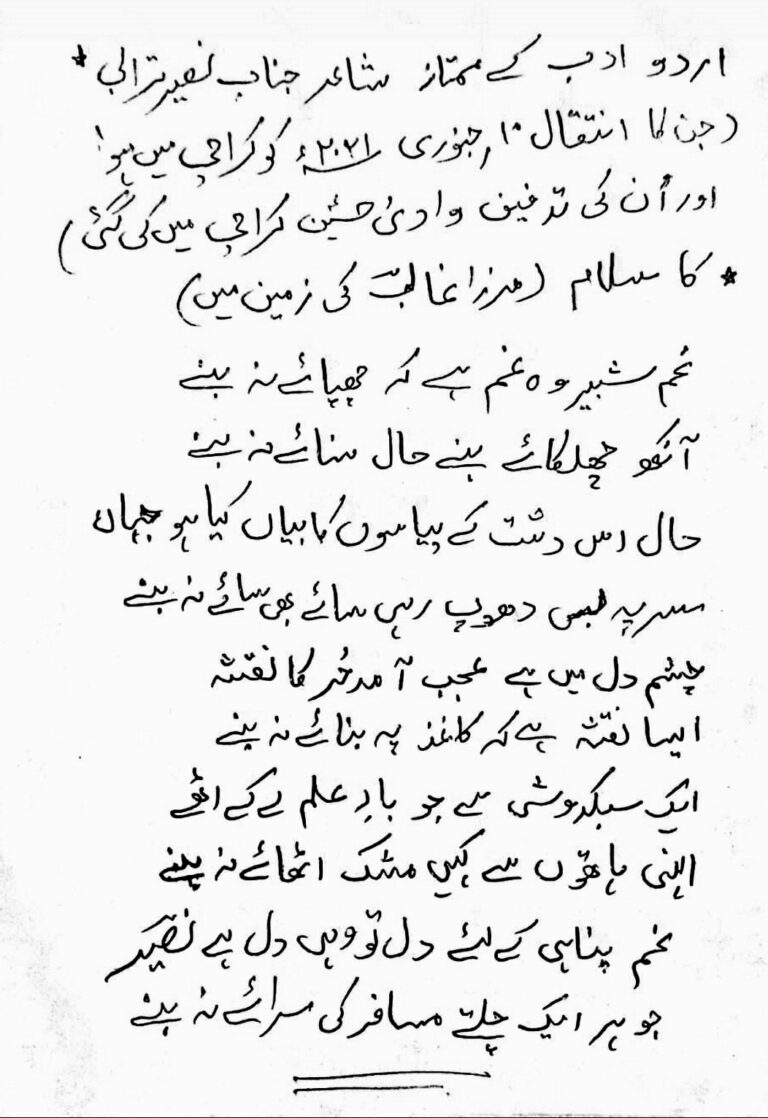 اردو ادب کے ممتاز شاعر جناب نصیر ترابی *
(جن کا انتقال ۱۰؍جنوری ۲۰۲۱ء کو کراچی میں ہوا
اور اُن کی تدفین وادیٔ حسین کراچی میں کی گئی)
* کا سلام (مرزا غالبؔ کی زمین میں)
غم شبیر وہ غم ہے کہ چھپائے نہ بنے
آنکھ چھلکائے بنے حال سنائے نہ بنے
حال اس دشت کے پیاسوں کا بیاں کیا ہو جہاں
سر پہ دھوپ رہی سائے بھی سائے نہ بنے
چشم دل میں ہے عجب آمد حُر کا نقشہ
ایسا نقشہ ہے کہ کاغذ پہ بنائے نہ بنے
ایک سبکدوشی سے جو بارِ علم لے کے اٹھے
انہی ہاتھوں سے کہیں مشک اٹھائے نہ بنے
غم پناہی کے لئے دل تو وہی دل ہے نصیرؔ
جو ہر ایک چلتے مسافر کی سرائے نہ بنے